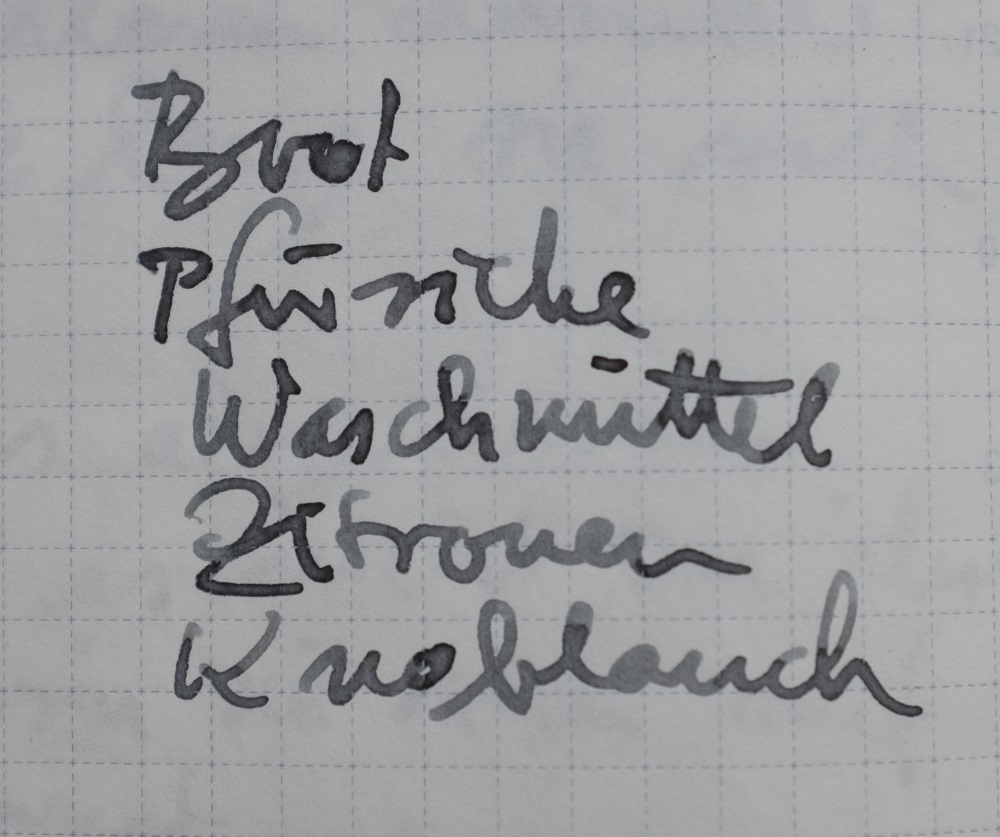 Brot
Pfirsiche
Waschmittel
Zitronen
Knoblauch